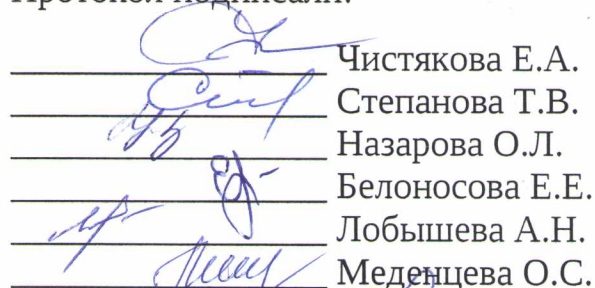 Протокол подписали:
Чистякова Е.А.
Степанова Т.В.
Назарова О.Л.
Белоносова Е.Е.
Лобышева А.Н.
Меденцева О.С.